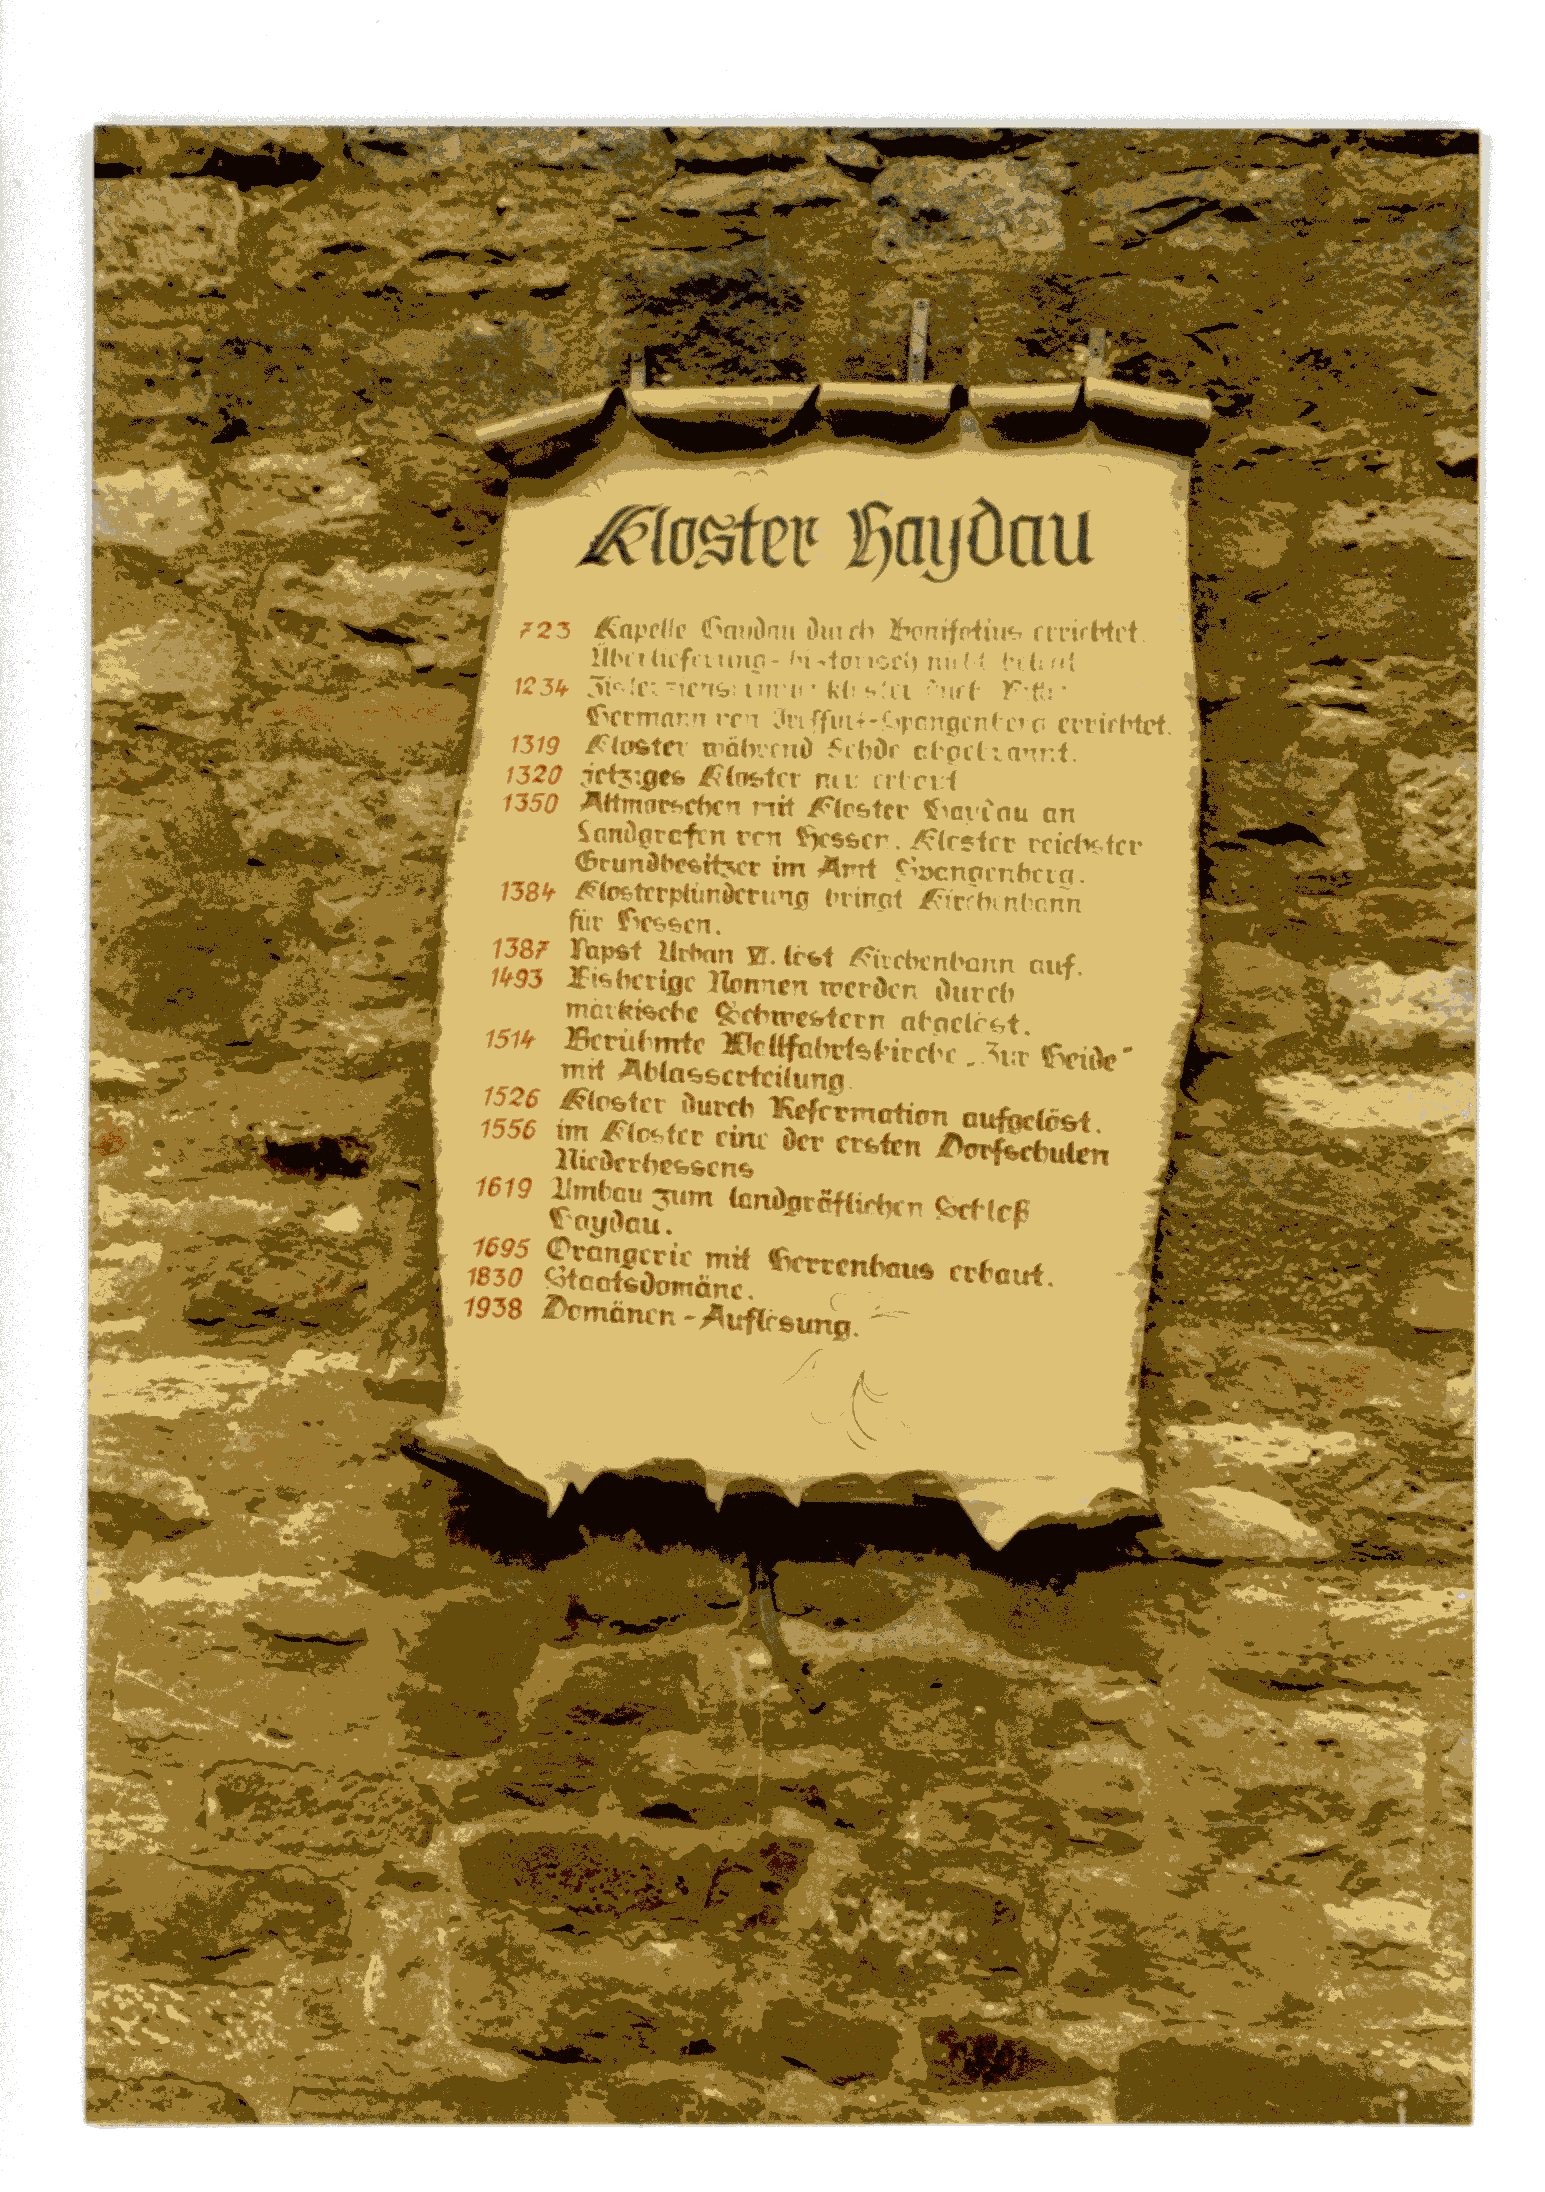 Kloster Haydau
723 Kapelle Haydau durch Bonifatius errichtet.
Überlieferung - historisch nicht
1234 kloster durch
Hermann von errichtet.
1319 Kloster während Fehde abgebrannt.
1320 jetziges Kloster neu erbaut
1350 Altmorschen mit Kloster Haydau an
Landgrafen von Hessen. Kloster reichster
Grundbesitzer im Amt Spangenberg.
1384 Klosterplünderung bringt Kirchenbann
für Hessen.
1387 Papst Urban VI. löst Kirchenbann auf.
1493 Bisherige Nonnen werden durch
märkische Schwestern abgelöst.
1514 Berühmte Wallfahrtskirche „Zur Heide“
mit Ablasserteilung.
1526 Kloster durch Reformation aufgelöst.
1556 im Kloster eine der ersten Dorfschulen
Niederhessens
1619 Umbau zum landgräflichen Schloß
Haydau.
1695 Orangerie mit Herrenhaus erbaut.
1830 Staatsdomäne.
1938 Domänen - Auflösung.